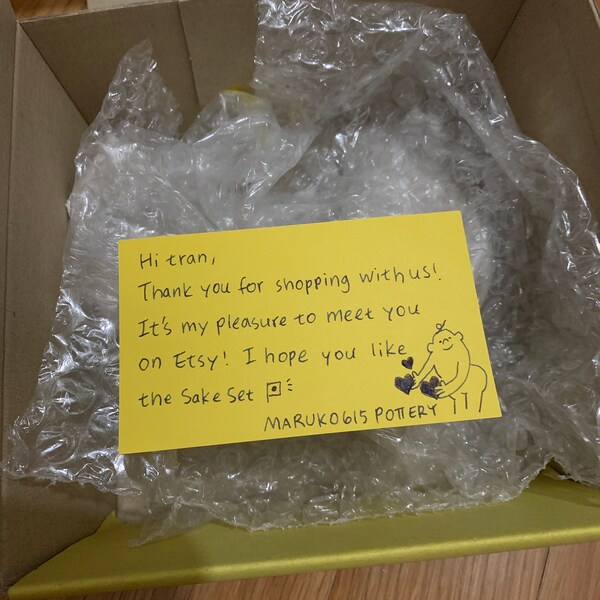 Hi tran,
Thank you for shopping with us!
It's my pleasure to meet you
on Etsy! I hope you like
the Sake Set
MARUKO615 POTTERY